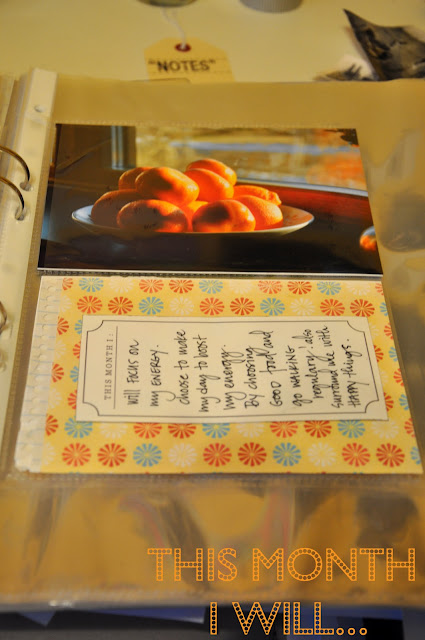 "NOTES"
THIS MONTH I...
will focus on
my ENERGY.
choose to make
my day to boost
my energy.
By choosing
GOOD food and
go walking
regulary. also
surround me with
happy things.
THIS MONTH
I WILL...